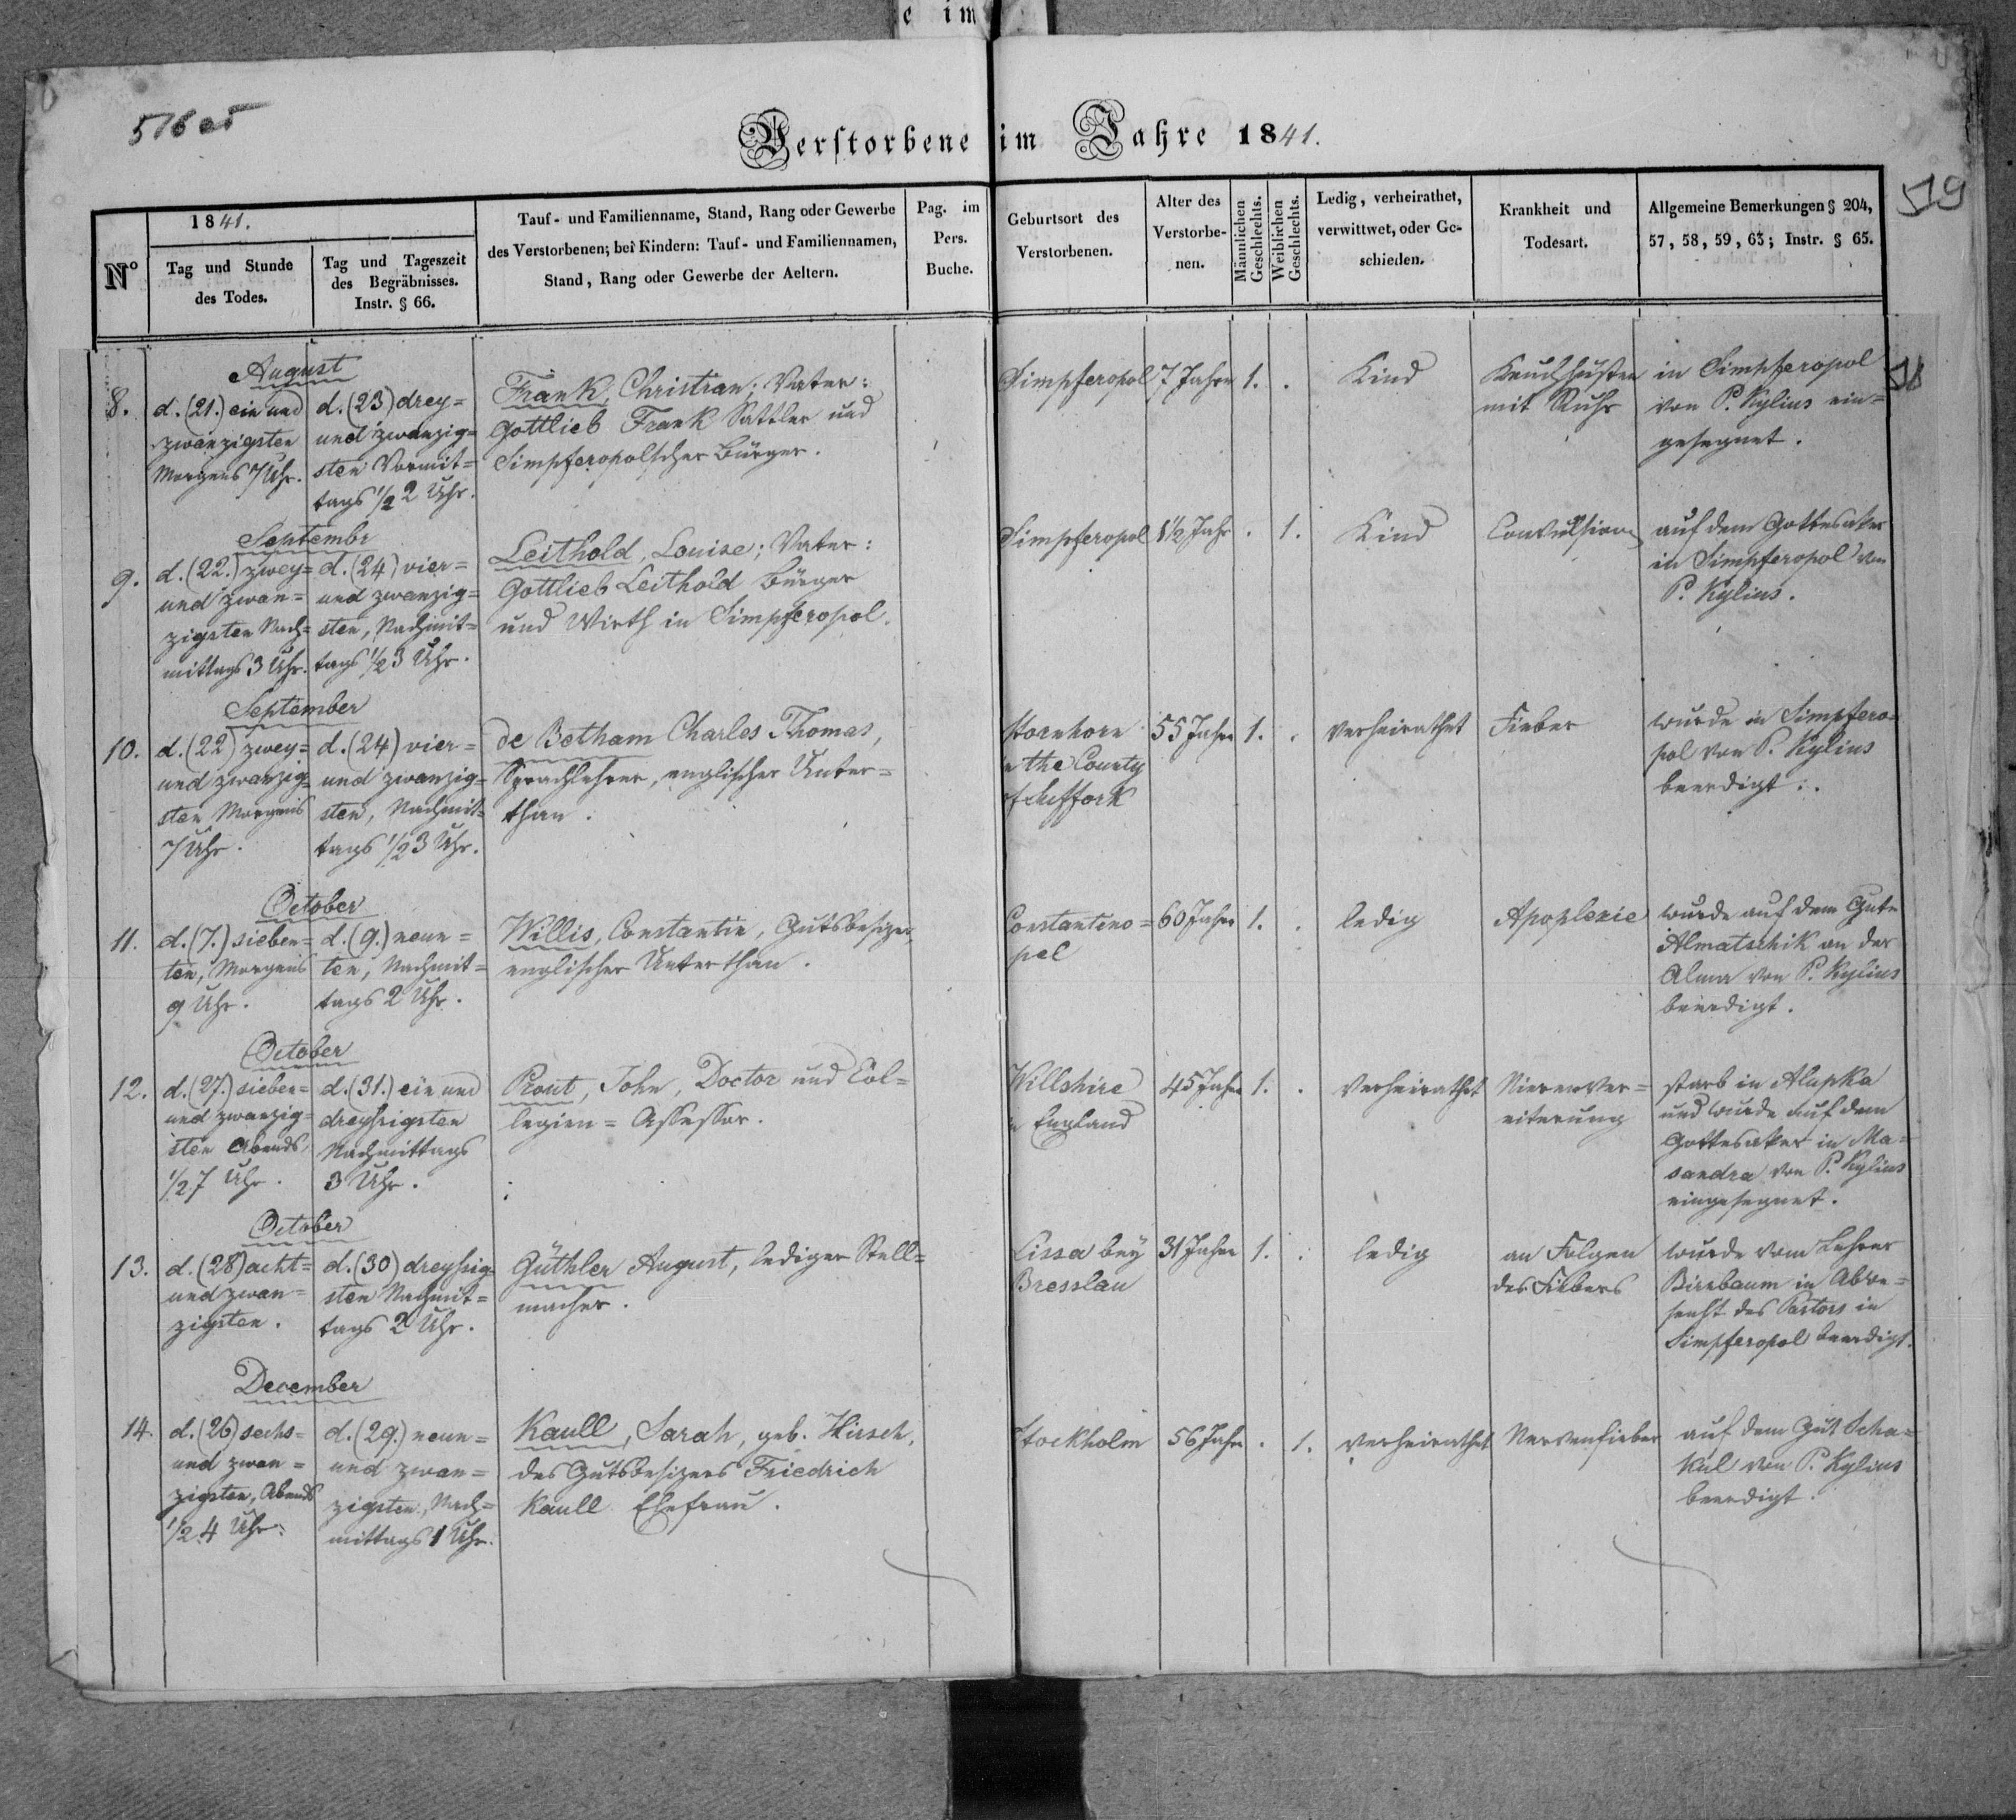 e im
516 об
Verstorbene im Jahre 1841.
519
Nº
1841.
Tag und Stunde
des Todes.
Tag und Tageszeit
des Begräbnisses.
Instr. § 66.
Tauf- und Familienname, Stand, Rang oder Gewerbe
des Verstorbenen; bei Kindern: Tauf- und Familiennamen,
Stand, Rang oder Gewerbe der Aeltern.
Pag. im
Pers.
Buche.
Geburtsort des
Verstorbenen.
Alter des
Verstorbe-
nen.
Männlichen
Geschlechts.
Weiblichen
Geschlechts.
Ledig, verheirathet,
verwittwet, oder Ge-
schieden.
Krankheit und
Todesart.
Allgemeine Bemerkungen § 204,
57, 58, 59, 63; Instr. § 65.
August
8.
d. (21.) ein und
zwanzigsten
Morgens 7 Uhr.
d. (23) drey=
und zwanzig=
sten Vormit=
tags 1/2 2 Uhr.
Frank, Christian; Vater:
Gottlieb Frank Sattler und
Simpferopolscher Bürger.
Simpferopol
7 Jahre
1.
.
Kind
Keuchhusten
mit Ruhr
in Simpferopol
von P. Kylius ein=
gesegnet.
Septembr
9.
d. (22.) zwey=
und zwan=
zigsten Nach=
mittags 3 Uhr.
d. (24) vier=
und zwanzig=
sten, Nachmit=
tags 1/2 3 Uhr.
Leithold, Louise; Vater:
Gottlieb Leithold Bürger
und Wirth in Simpferopol.
Simpferopol
1 1/2 Jahr
.
1.
Kind
Convulsion
auf dem Gottesaker
in Simpferopol von
P. Kylius.
September
10.
d. (22) zwey=
und zwanzig=
sten Morgens
7 Uhr.
d. (24) vier=
und zwanzig=
sten, Nachmit=
tags 1/2 3 Uhr.
de Betham Charles Thomas,
Sprachlehrer, englischer Unter=
than.
the County
55 Jahre
1.
.
verheirathet
Fieber
wurde in Simpfero=
pol von P. Kylius
beerdigt.
October
11.
d. (7.) sieben=
ten, Morgens
9 Uhr.
d. (9.) neun=
ten, Nachmit=
tags 2 Uhr.
Willis, Constantin, Gutsbesizer,
englischer Unterthan.
Constantino=
pel
60 Jahre
1.
.
ledig
Apoplexie
wurde auf dem Gute
Almatschik an der
Alma von P. Kylius
beerdigt.
October
12.
d. (27.) sieben=
und zwanzig=
sten Abends,
1/2 7 Uhr.
d. (31.) ein und
dreyssigsten
Nachmittags
3 Uhr.
Prout, John, Doctor und Col=
legien=Assessor.
Willshire
England
45 Jahre
1.
.
verheirathet
Nierenver=
eiterung
starb in Alupka
und wurde auf dem
Gottesaker in Ma=
sandra von P. Kylius
eingesegnet.
October
13.
d. (28) acht=
und zwan=
zigsten.
d. (30) dreyssig=
sten Nachmit=
tags 2 Uhr.
Güthler August, lediger Stell=
macher.
Lissa bey
Bresslau
31 Jahre
1.
.
ledig
an Folgen
des Fiebers
wurde vom Lehrer
Birnbaum in Abwe=
senheit des Pastors in
Simpferopol beerdigt.
December
14.
d. (26) sechs=
und zwan=
zigsten, Abends
1/2 4 Uhr.
d. (29.) neun=
und zwan=
zigsten, Nach=
mittags 1 Uhr.
Kaull, Sarah, geb. Hirsch,
des Gutsbesizers Friedrich
Kaull Ehefrau.
Stockholm
56 Jahre
.
1.
verheirathet
Nervenfieber
auf dem Gut Scha=
kul von P. Kylius
beerdigt.